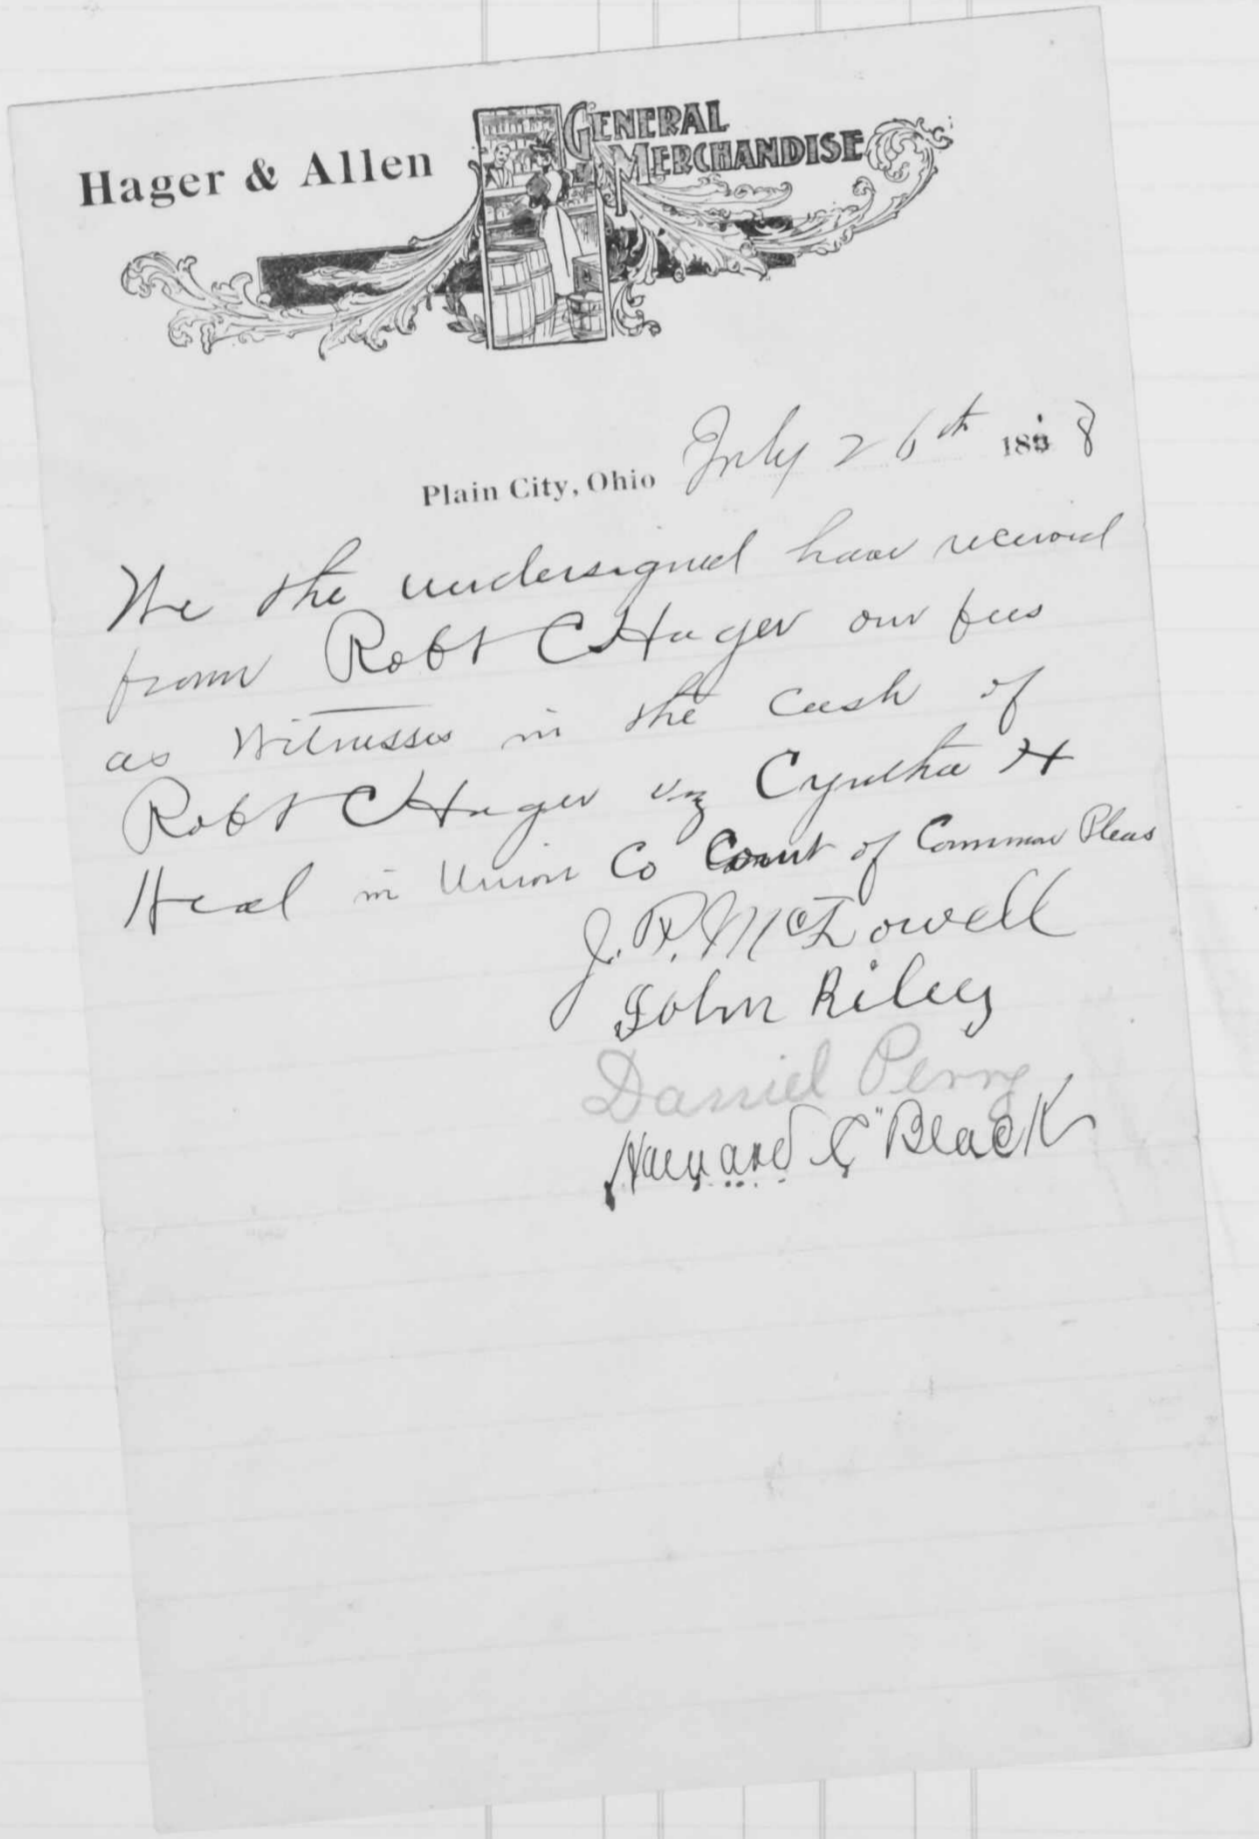 Hager & Allen
GENERAL
MERCHANDISE
Plain City, Ohio July 26th 1898
We the undersigned have received
from Robt C Hager our fees
as Witnesses in the Cash of
Robt C Hager vz Cyntha H
Heal in Union Co Court of Common Pleas
J. P. McDowell
John Riley
Daniel Perry
C Black